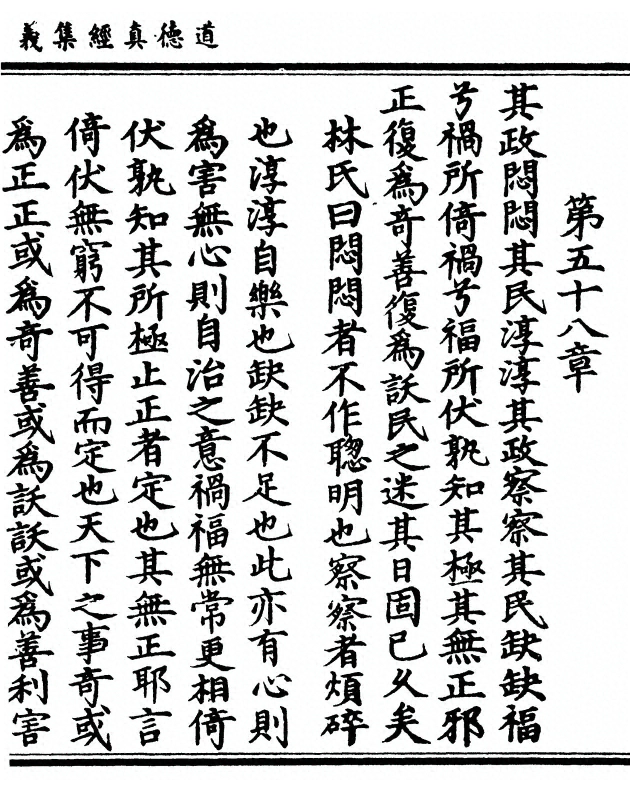 道德真經集義
第五十八章
其政悶悶其民淳淳其政察察其民缺缺福
兮禍所倚禍兮福所伏孰知其極其無正邪
正復為奇善復為訞民之迷其日固已久矣
林氏曰悶悶者不作聰明也察察者煩碎
也淳淳自樂也缺缺不足也此亦有心則
為害無心則自治之意禍福無常更相倚
伏孰知其所極止正者定也其無正耶言
倚伏無窮不可得而定也天下之事奇或
為正正或為奇善或為訞訞或為善利害